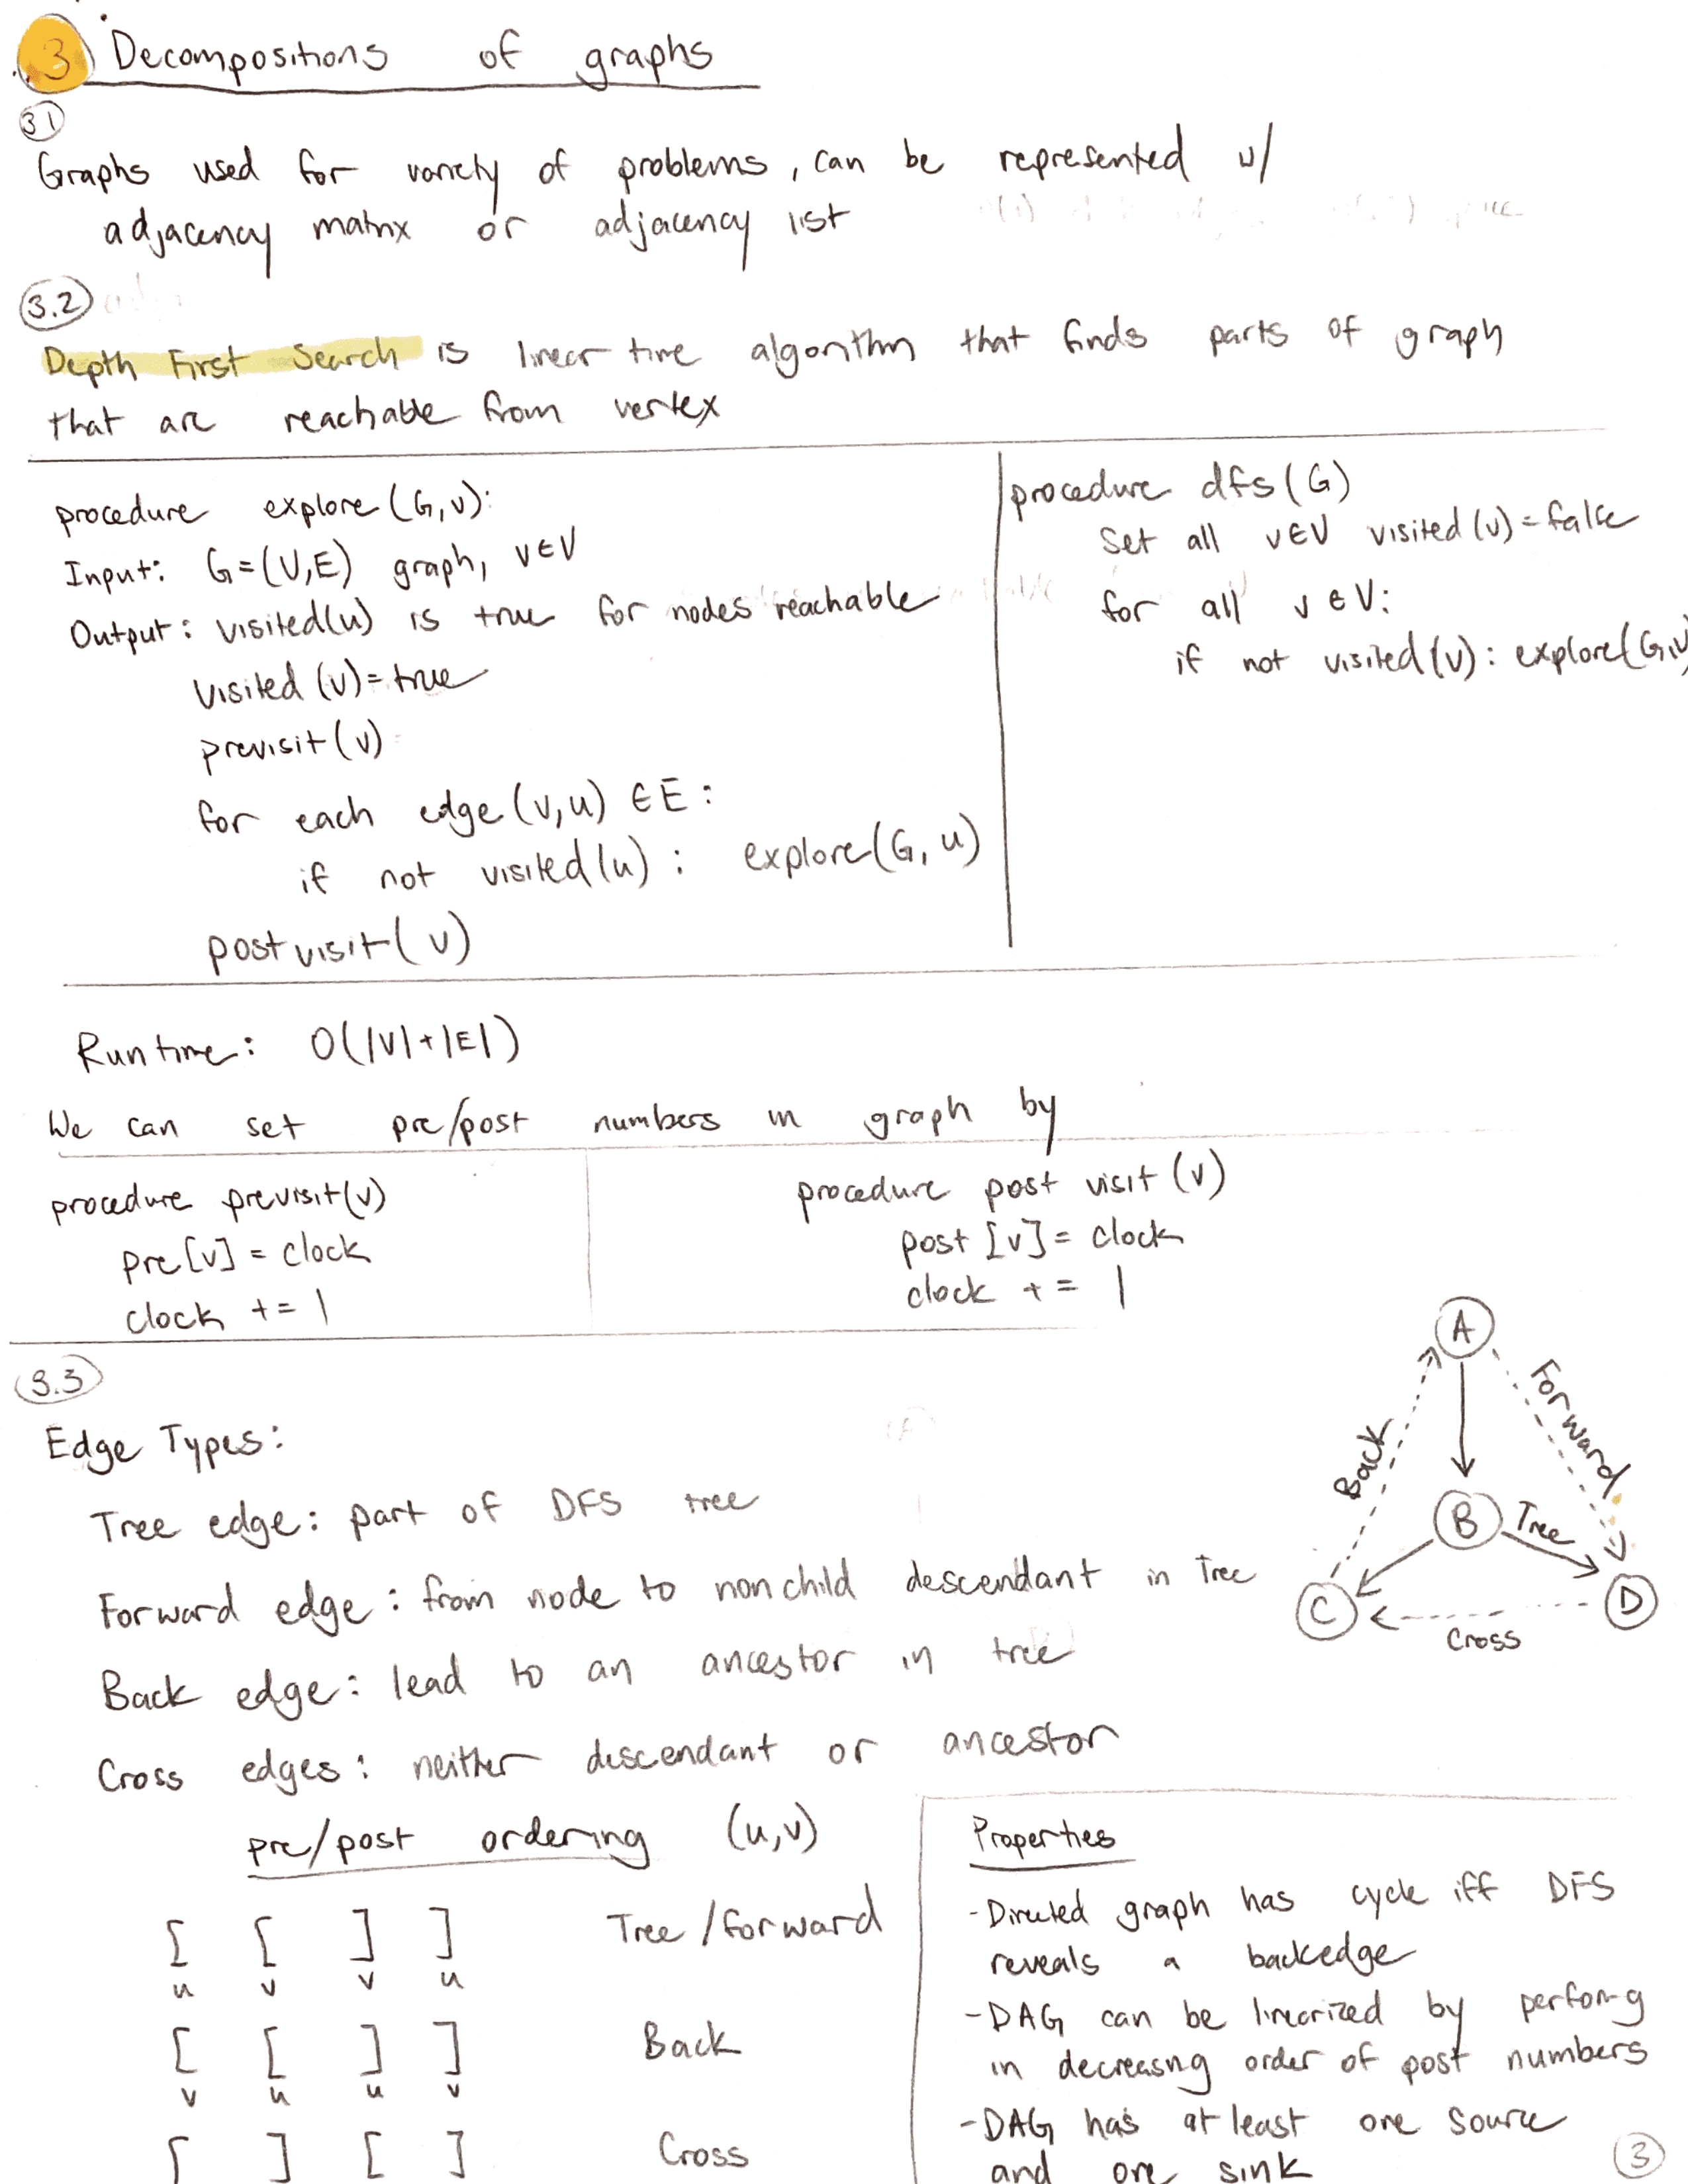 3 Decompositions of graphs
3.1
Graphs used for variety of problems, can be represented w/
adjacency matrix or adjacency list
3.2
Depth First Search is linear time algorithm that finds parts of graph
that are reachable from vertex
procedure explore(G,v):
Input: G=(V,E) graph, v∈V
Output: visited(u) is true for nodes reachable
visited(v)=true
previsit(v)
for each edge(v,u) ∈ E:
if not visited(u): explore(G,u)
postvisit(v)
procedure dfs(G)
Set all v∈V visited(v)=false
for all v∈V:
if not visited(v): explore(G,v)
Runtime: O(|V|+|E|)
We can set pre/post numbers in graph by
procedure previsit(v)
pre[v] = clock
clock += 1
procedure post visit(v)
post[v] = clock
clock += 1
3.3
Edge Types:
Tree edge: part of DFS tree
Forward edge: from node to nonchild descendant in Tree
Back edge: lead to an ancestor in tree
Cross edges: neither descendant or ancestor
A
Back
Forward
B
Tree
C
D
Cross
pre/post ordering (u,v)
[ [ ] ] Tree/forward
u v v u
[ [ ] ] Back
v u u v
[ ] [ ] Cross
Properties
-Directed graph has cycle iff DFS
reveals a backedge
-DAG can be linearized by perform-g
in decreasng order of post numbers
-DAG has at least one source
and one sink
3